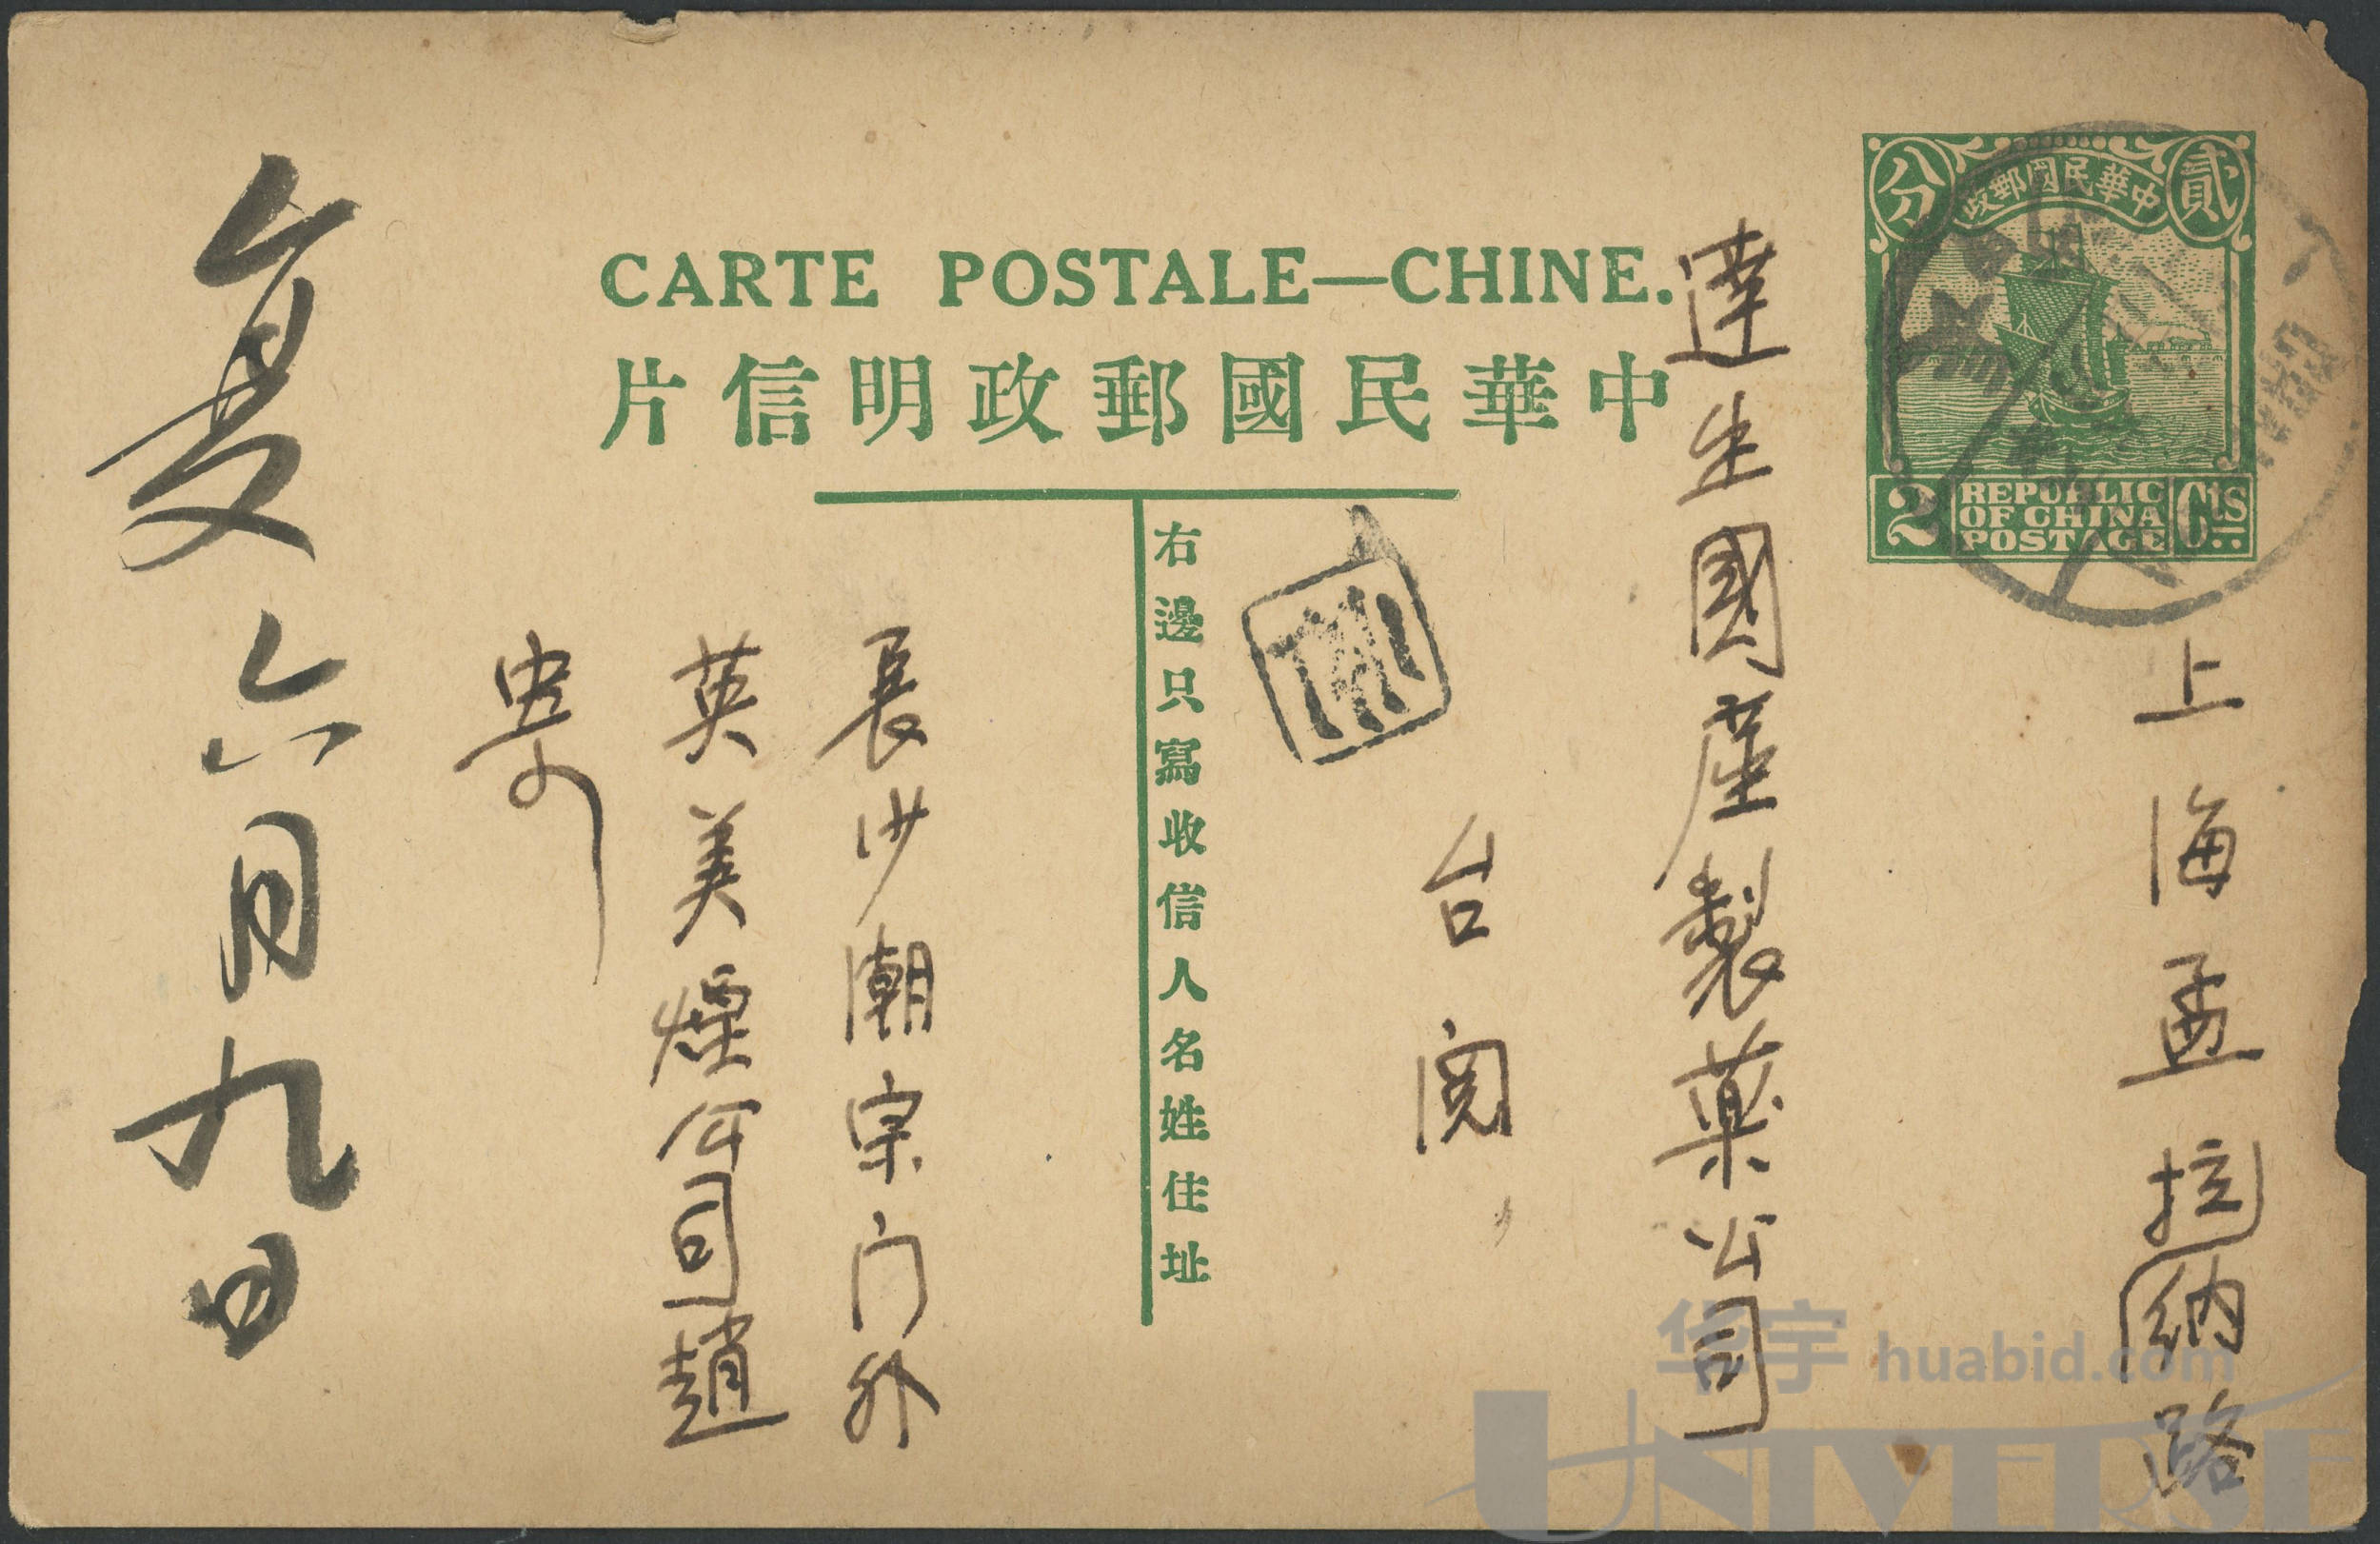 CARTE POSTALE—CHINE.
中華民國郵政明信片
貳分
中華民國郵政
2 REPUBLIC OF CHINA POSTAGE Cts.
上海孟拉納路
達生國產製藥公司
台閱
右邊只寫收信人名姓住址
長沙潮宗门外
英美煙公司趙
寄
复六月九日
华宇 huabid.com
UNIVERSE